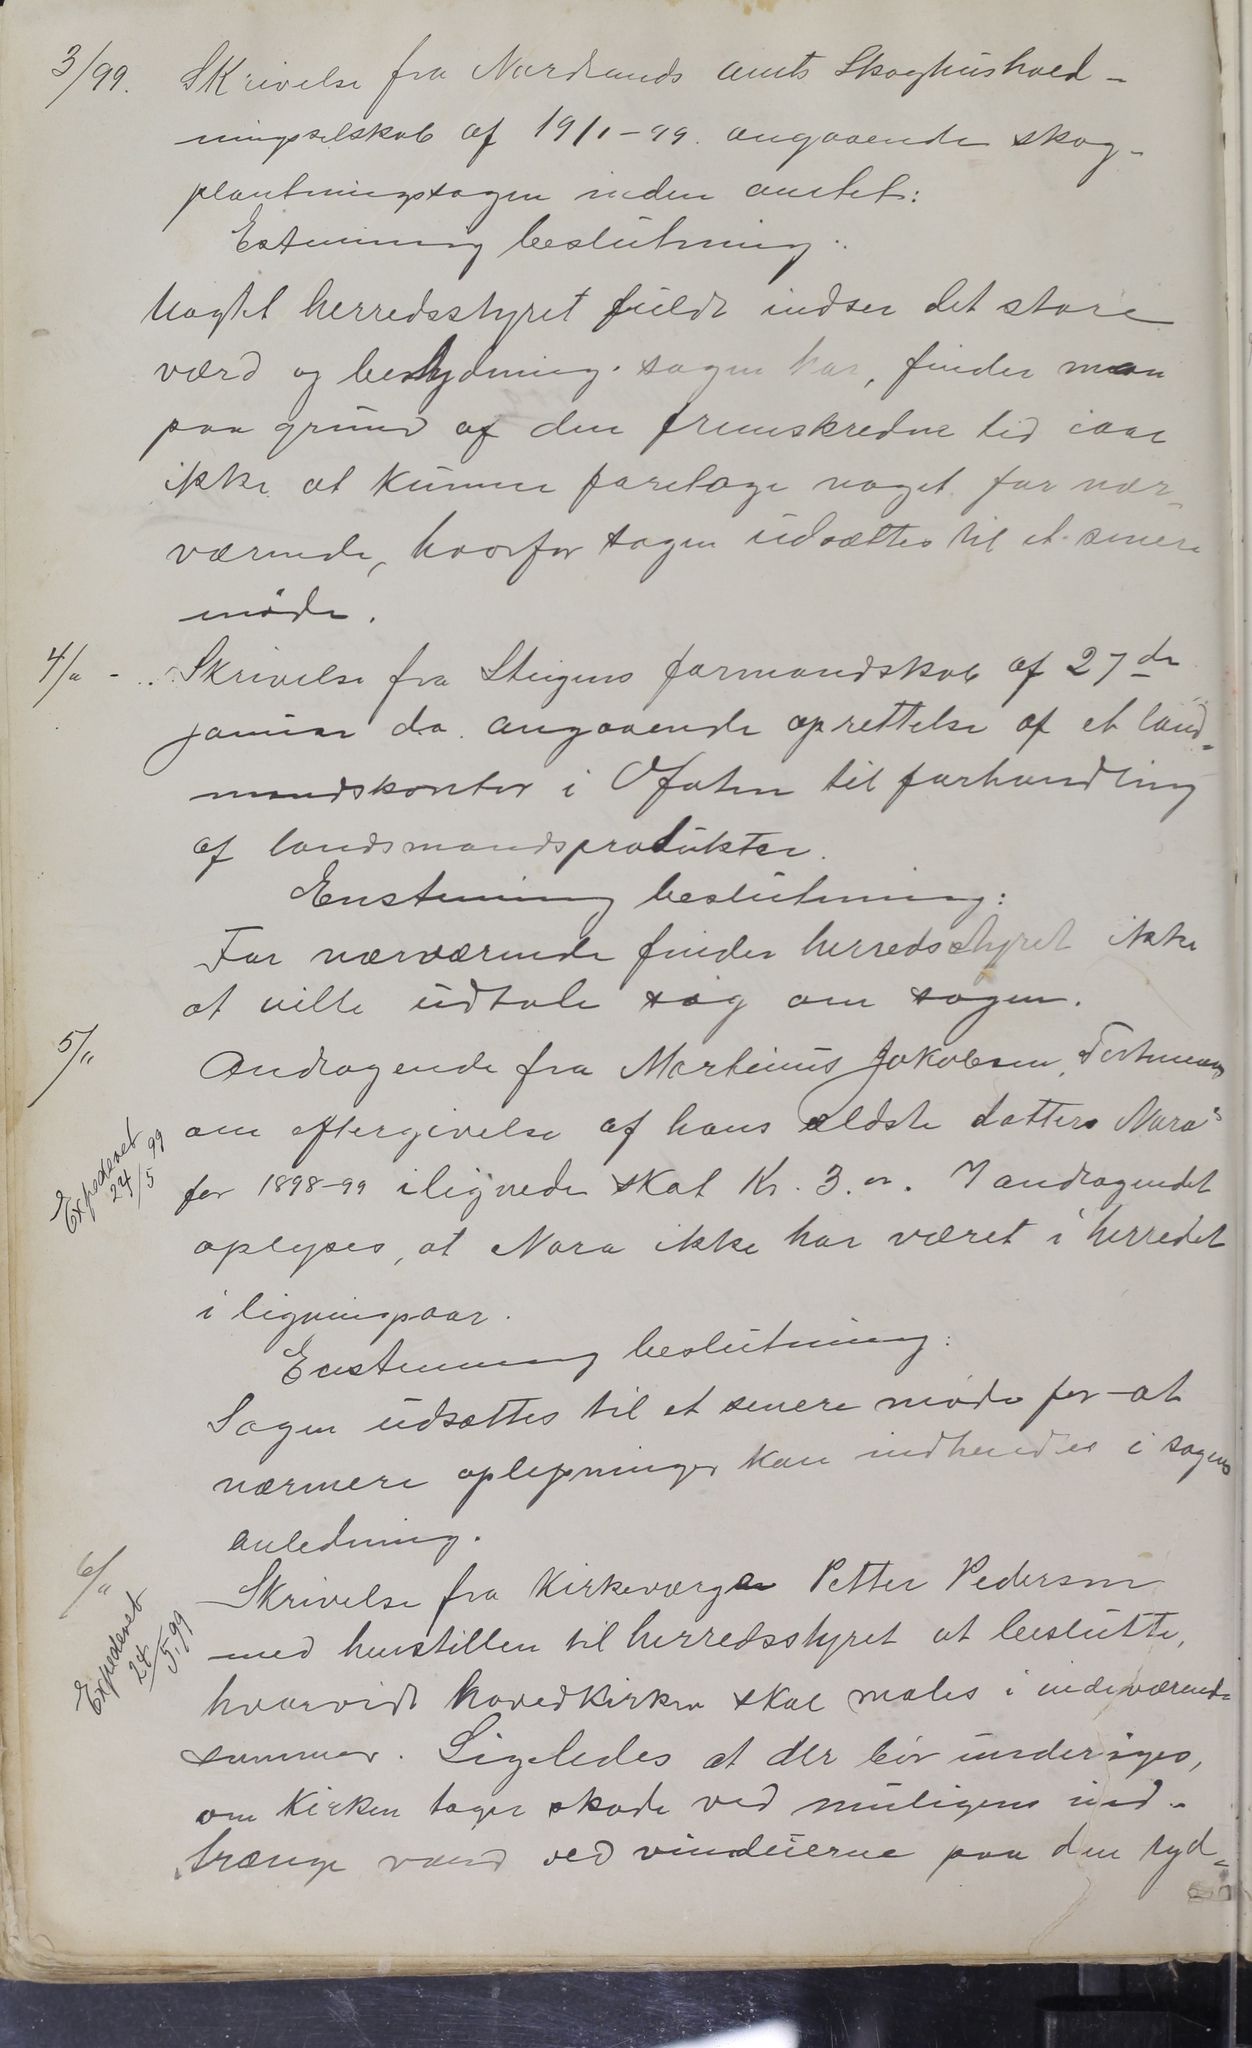 3/99. Skrivelse fra Nordlands amts Skoghushold-
ningsselskab af 19/1-99. angaaende skog-
plantningssagen inden amtet:
Estemmig beslutning:
Uagtet herredsstyret fuldt indser det store
værd og betydning sagen har, finder man
paa grund af den fremskredne tid iaar
ikke at kunne foretage noget for nær-
værende, hvorfor sagen udsættes til et senere
møde.
4/" - Skrivelse fra Steigens formandskab af 27de
januar da. angaaende oprettelse af et land-
mandskontor i Ofoten til forhandling
af landsmandsprodukter.
Enstemmig beslutning:
For nærværende finder herredsstyret ikke
at ville udtale sig om sagen.
5/" Andragende fra Martinus Jakobsen,
Expederet
24/5 99
om eftergivelse af hans ældste datters Nora's
for 1898-99 ilignede skat Kr. 3.00. I andragendet
oplyses, at Nora ikke har været i herredet
i ligningsaar.
Enstemmig beslutning:
Sagen udsættes til et senere møde for at
nærmere oplysninger kan indhendes i sagens
anledning.
6/" Skrivelse fra Kirkeværge Petter Pedersen
Expederet
24/5.99
med henstillen til herredsstyret at beslutte,
hvorvidt hovedkirken skal males i indeværende
sommer. Ligeledes at der bør undersøges,
om Kirken tager skade ved muligens ind-
trænge vand ved vinduerne paa den syd-